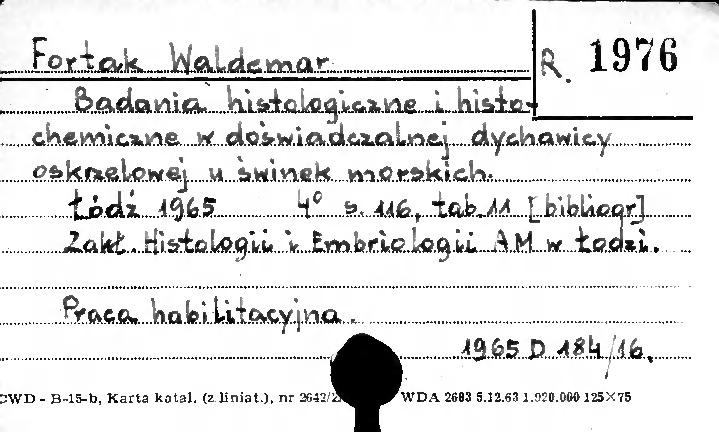 Fortak Waldemar
R. 1976
Badania histologiczne i histo-
chemiczne w doświadczalnej dychawicy
oskrzelowej u świnek morskich.
Łódź 1965 4° s. 116, tab. 11 [bibliogr]
Zakł. Histologii i Embriologii AM w Łodzi.
Praca habilitacyjna.
1965 D 184/16.
CWD - B-15-b, Karta katal. (z liniat.), nr 2642/ WDA 2683 5.12.63 1.920.000 125×75